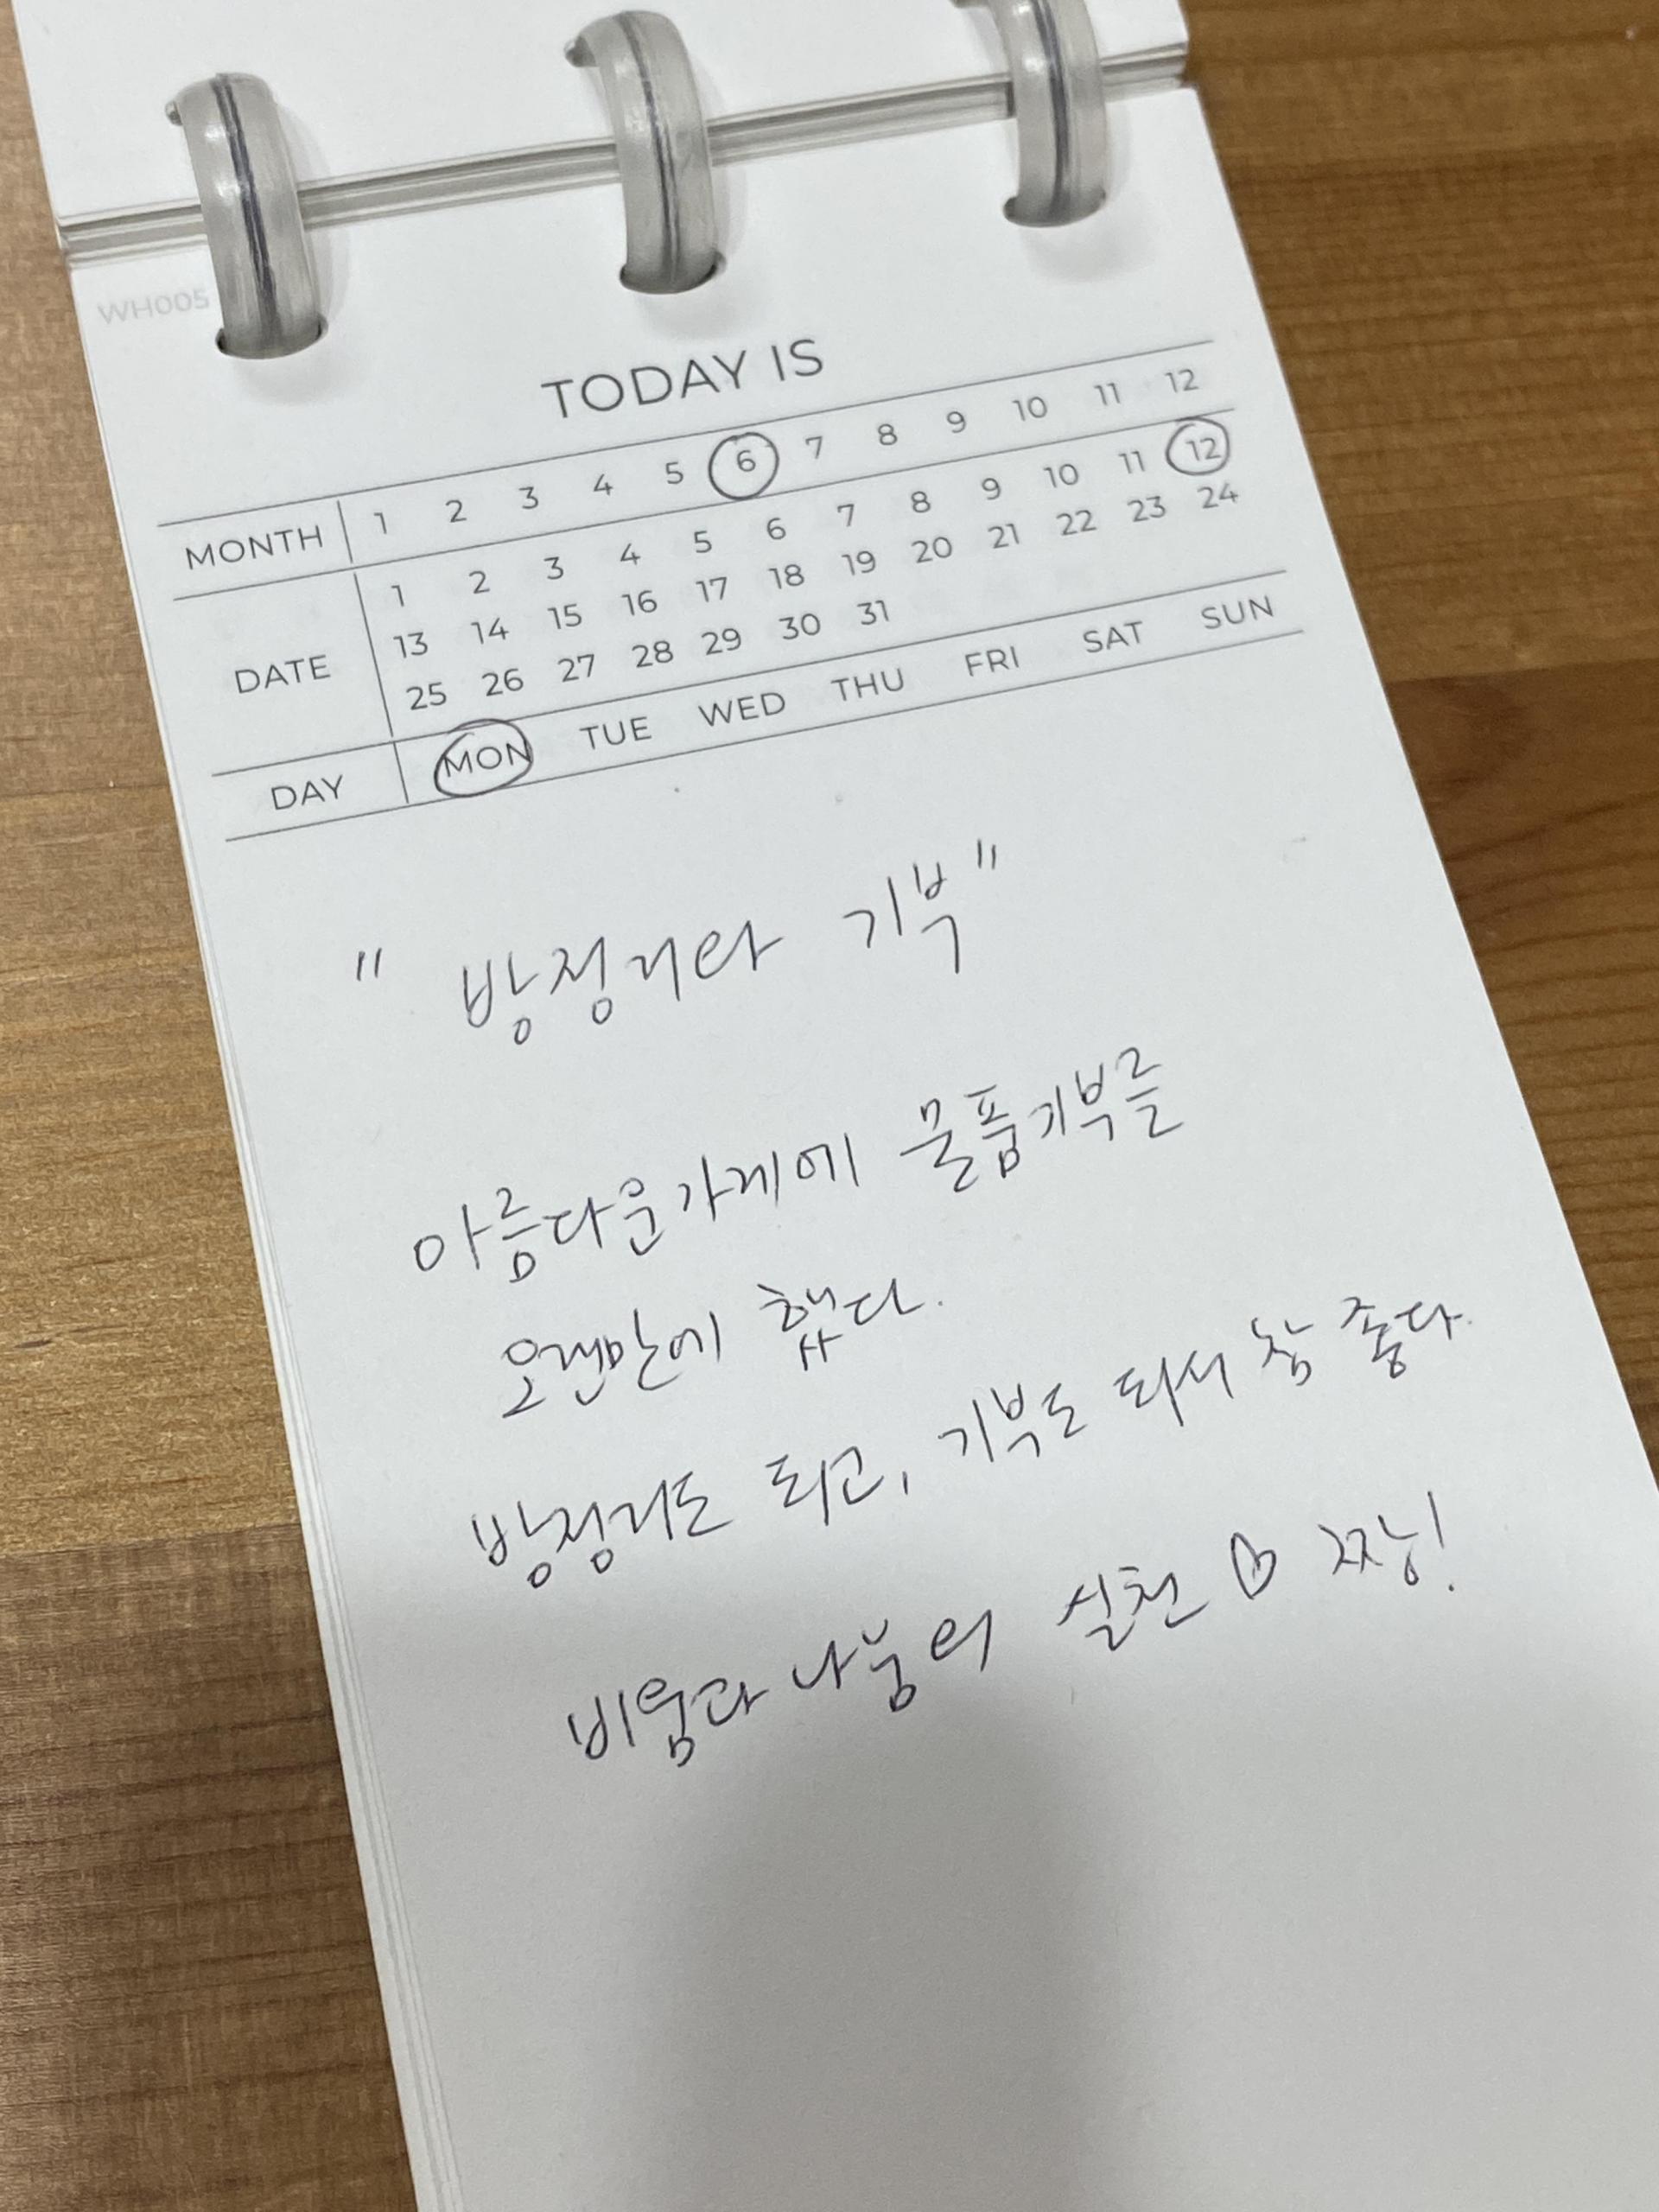 WH005
TODAY IS
MONTH 1 2 3 4 5 6 7 8 9 10 11 12
DATE 1 2 3 4 5 6 7 8 9 10 11 12
13 14 15 16 17 18 19 20 21 22 23 24
25 26 27 28 29 30 31
DAY MON TUE WED THU FRI SAT SUN
" 방정리와 기부 "
아름다운가게에 물품기부를
오랜만에 했다.
방정리도 되고, 기부도 되서 참 좋다.
비움과 나눔의 실천 ♡ 짱!